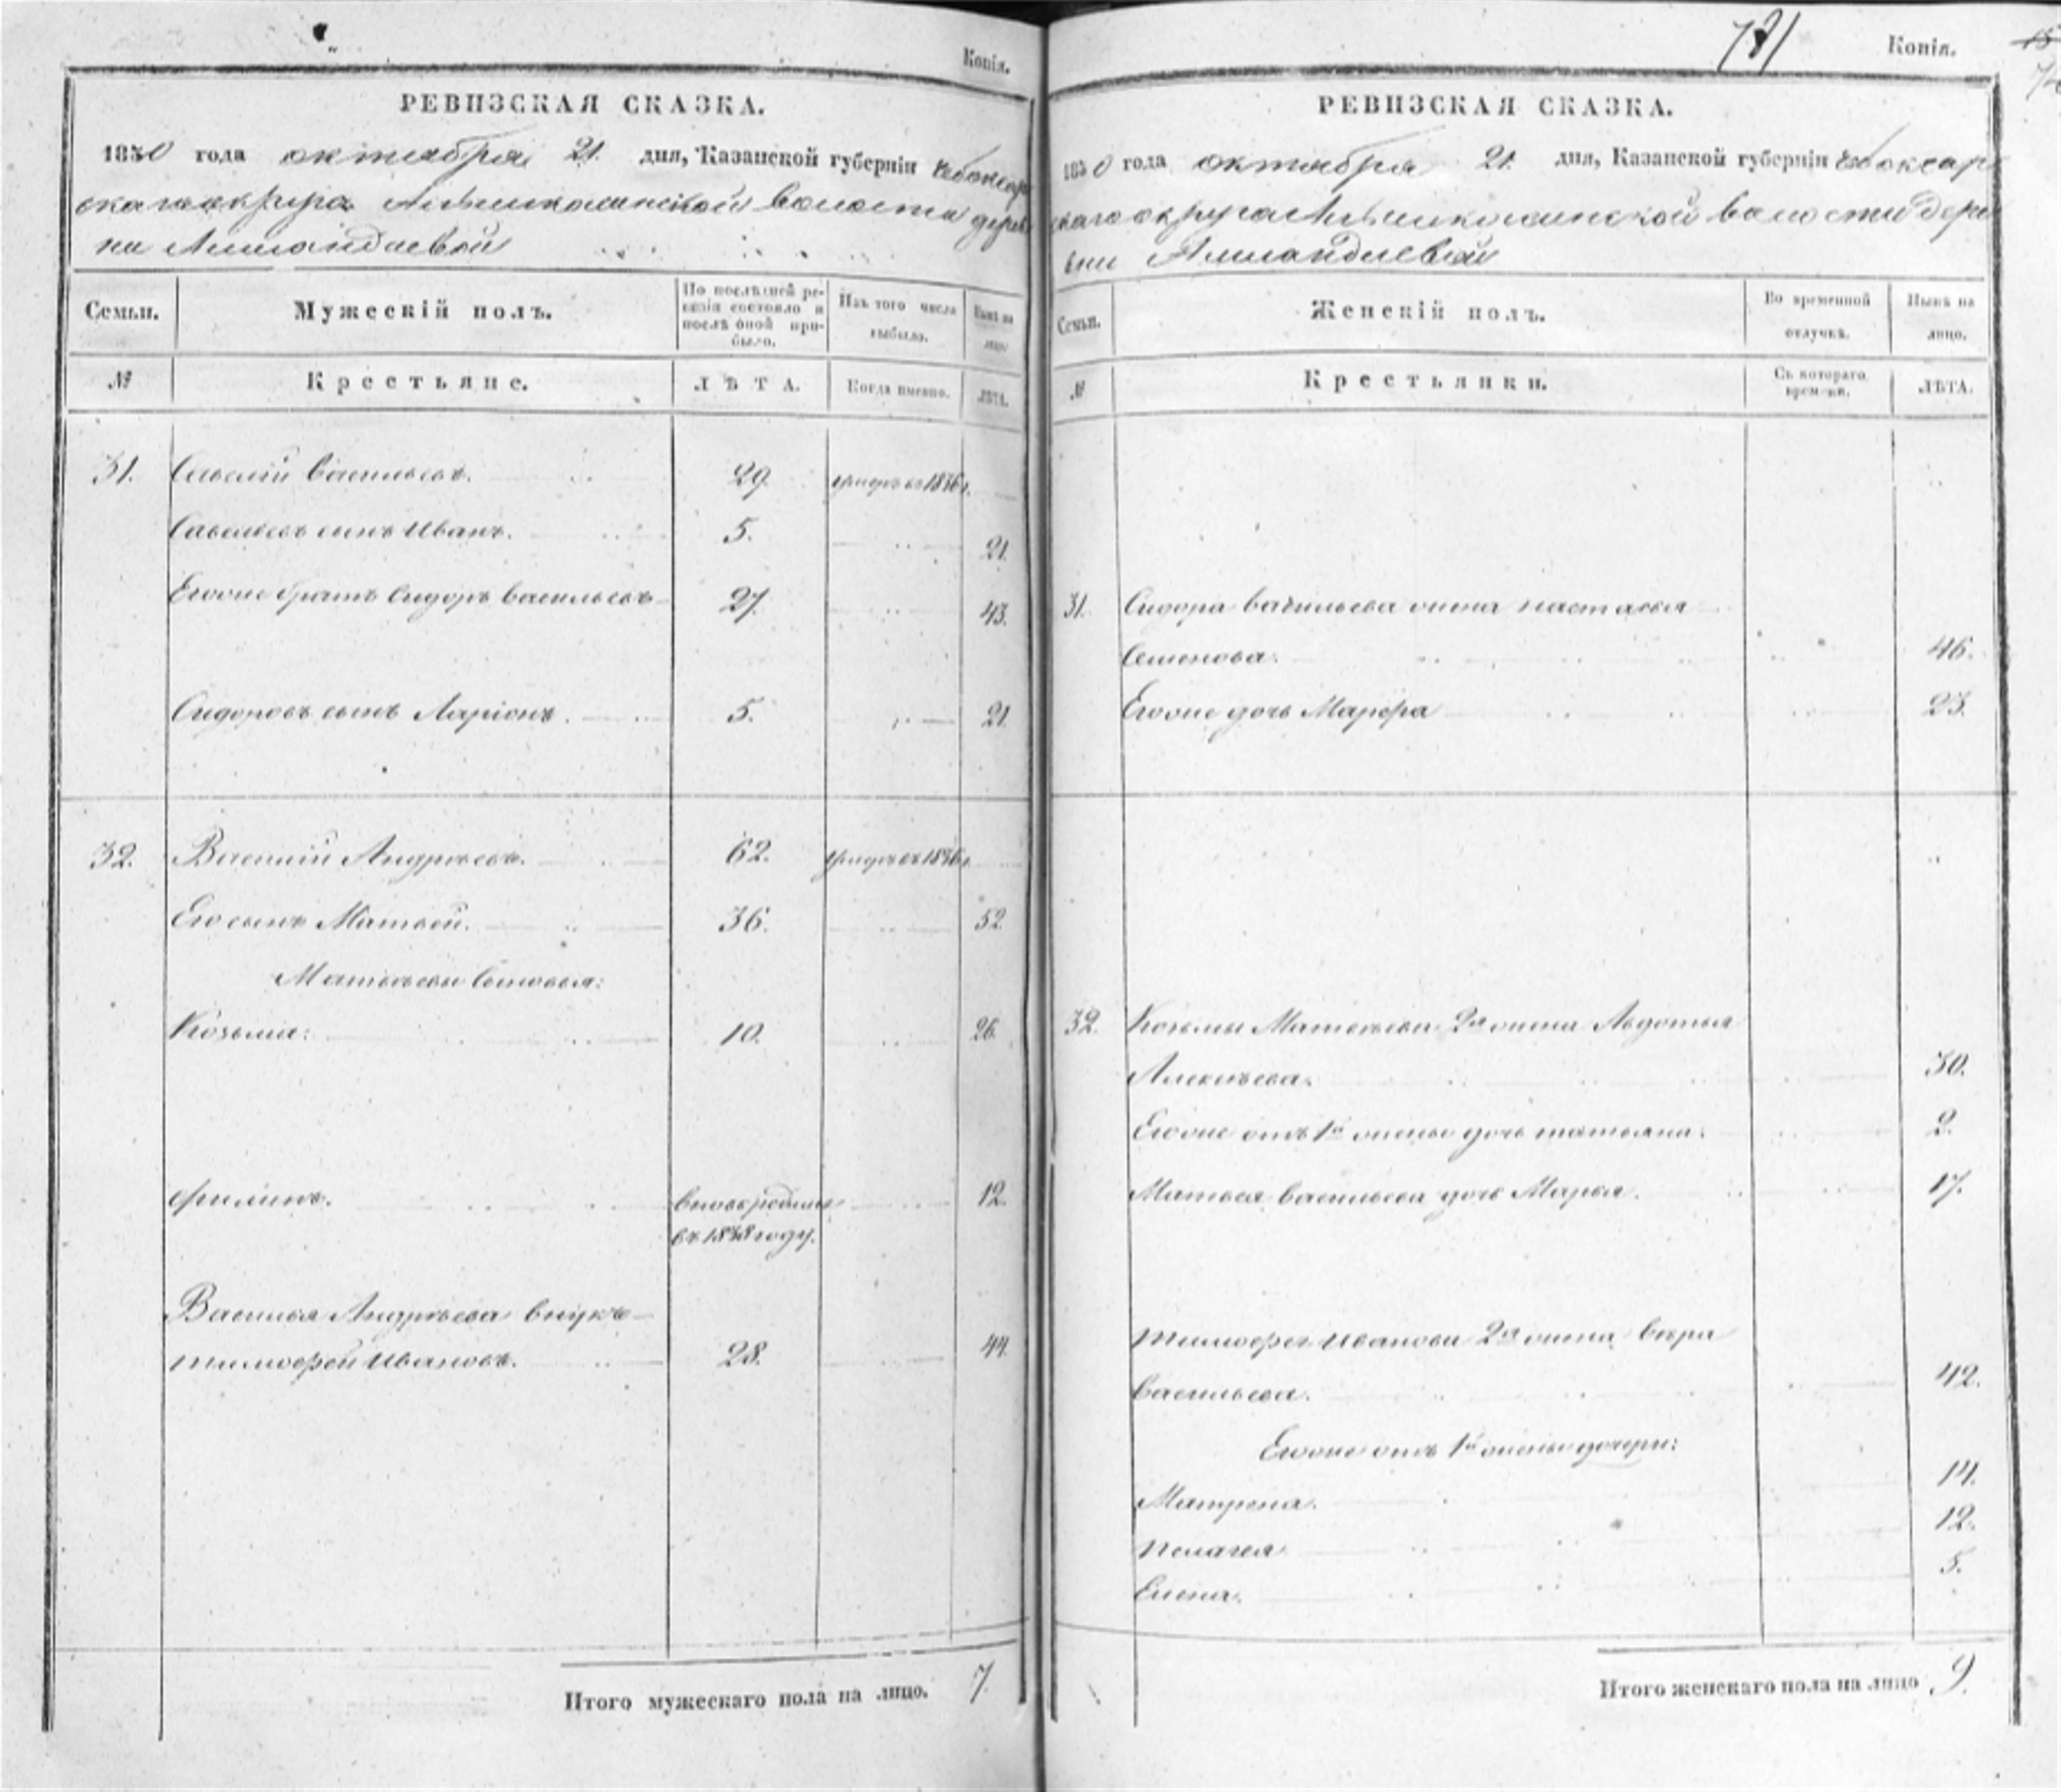 Копія.
РЕВИЗСКАЯ СКАЗКА.
1850 года октября 21 дня, Казанской губерніи Чебоксар
скаго округа волости дерев
ни Алмандаевой
Семьи.
Мужескій полъ.
По послѣдней ре-
візіи состояло и
послѣ оной при-
было.
Изъ того числа
выбыло.
Нынѣ на
лицо.
№
Крестьяне.
ЛѢТА.
Когда именно.
ЛѢТА.
31. Савелій Васильевъ. 29. умеръ въ 1846 г.
Савельевъ сынъ Иванъ. 5. 21.
Егоже братъ Сидоръ Васильевъ 27. 43.
Сидоровъ сынъ Ларіонъ. 5. 21.
32. Василий Андреевъ. 62. умеръ въ 1846 г.
Его сынъ Матвей. 36. 52.
Матвѣевы Сыновья:
Козьма: 10. 26.
Филипъ. вновь рожденъ 12.
въ 1838 году.
Василья Андрѣева внукъ
Тимофей Ивановъ. 28. 44.
Итого мужескаго пола на лицо. 7.
Копія.
РЕВИЗСКАЯ СКАЗКА.
1850 года октября 21 дня, Казанской губерніи Чебоксар
скаго округа волости дере
вни Алмандаевой
Семьи.
Женскій полъ.
Во временной
отлучкѣ.
Нынѣ на
лицо.
№
Крестьянки.
Съ котораго
времени.
ЛѢТА.
31. Сидора Васильева жена Настасья
Семенова. 46.
Егоже дочь Марфа 23.
32. Козьмы Матвѣева 2я жена Авдотья
Алексѣева. 30.
Егоже отъ 1й жены дочь Татьяна. 2.
Матвея Васильева дочь Марья. 17.
Тимофея Иванова 2я жена Вера
Васильева. 42.
Егоже отъ 1й жены дочери:
Матрена. 14.
Пелагея 12.
Елена. 5.
Итого женскаго пола на лицо 9.